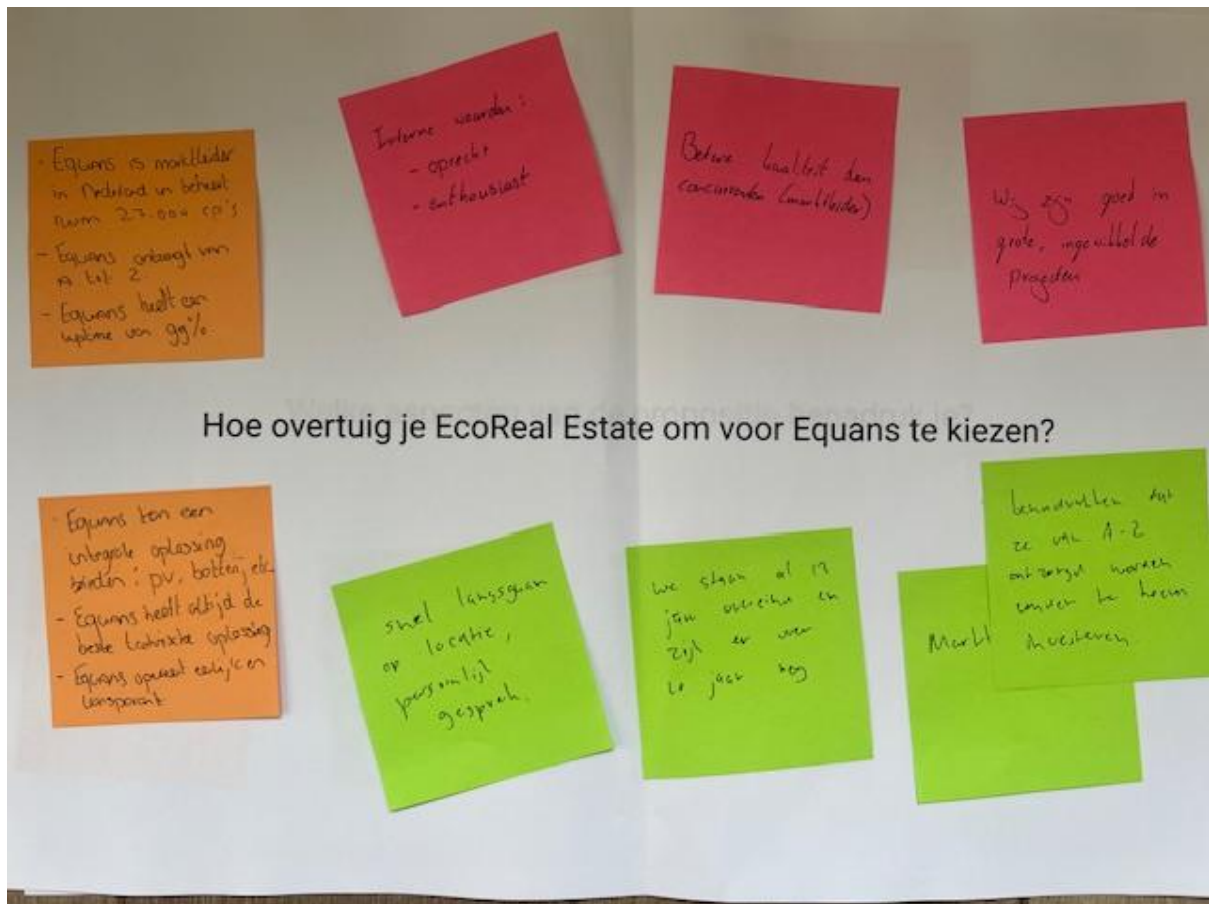 - Equans is marktleider
in Nederland en beheert
ruim 27.000 cp's
- Equans ontzorgt van
A tot Z
- Equans heeft een
uptime van 99%
Interne waarden:
- oprecht
- enthousiast
Betere kwaliteit dan
concurrenten (marktleider)
Wij zijn goed in
grote, ingewikkelde
projecten
Hoe overtuig je EcoReal Estate om voor Equans te kiezen?
- Equans kan een
integrale oplossing
bieden: pv, batterij etc
- Equans heeft altijd de
beste technische oplossing
- Equans opereert eerlijk en
transparant
snel langsgaan
op locatie,
persoonlijk
gesprek.
we staan al 13
jaar overeind en
zijn er over
jaar nog
Markt
benadrukken dat
ze van A-Z
ontzorgd worden
zonder te hoeven
investeren